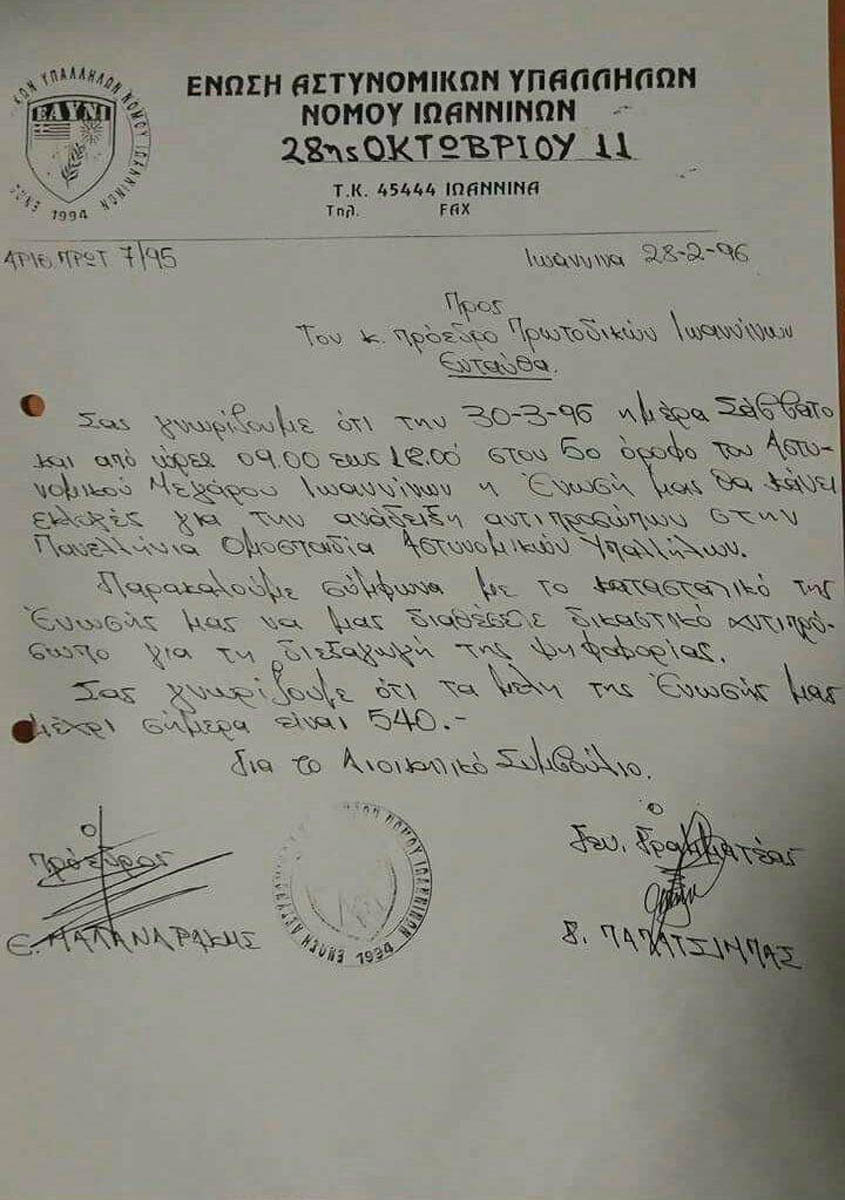 ΚΩΝ ΥΠΑΛΛΗΛΩΝ ΝΟΜΟΥ ΙΩΑΝΝΙΝΩΝ
ΕΑΥΝΙ
ΕΝΩΣ
1994
ΕΝΩΣΗ ΑΣΤΥΝΟΜΙΚΩΝ ΥΠΑΛΛΗΛΩΝ
ΝΟΜΟΥ ΙΩΑΝΝΙΝΩΝ
28ης ΟΚΤΩΒΡΙΟΥ 11
Τ.Κ. 45444 ΙΩΑΝΝΙΝΑ
Τηλ. FAX
ΑΡΙΘ. ΠΡΩΤ 7/95
Ιωάννινα 28-2-96
Προς
Τον κ. πρόεδρο Πρωτοδικών Ιωαννίνων
Ενταύθα.
Σας γνωρίζουμε ότι την 30-3-96 ημέρα Σάββατο
και από ώρες 09.00 εως 18.00 στον 5ο όροφο του Αστυ-
νομικού Μεγάρου Ιωαννίνων η Ένωσή μας θα κάνει
εκλογές για την ανάδειξη αντιπροσώπων στην
Πανελλήνια Ομοσπονδία Αστυνομικών Υπαλλήλων.
Παρακαλούμε σύμφωνα με το καταστατικό της
Ένωσής μας να μας διαθέσετε δικαστικό αντιπρό-
σωπο για τη διεξαγωγή της ψηφοφορίας.
Σας γνωρίζουμε ότι τα μελη της Ένωσής μας
μέχρι σήμερα είναι 540.-
Για το Διοικητικό Συμβούλιο.
Ο
Πρόεδρος
Ο
Γεν. Γραμματέας
ΝΟΜΟΥ ΙΩΑΝΝΙΝΩΝ
ΕΝΩΣΗ ΑΣΤΥΝΟΜ
1994
Β. ΠΑΠΑΤΣΙΜΠΑΣ